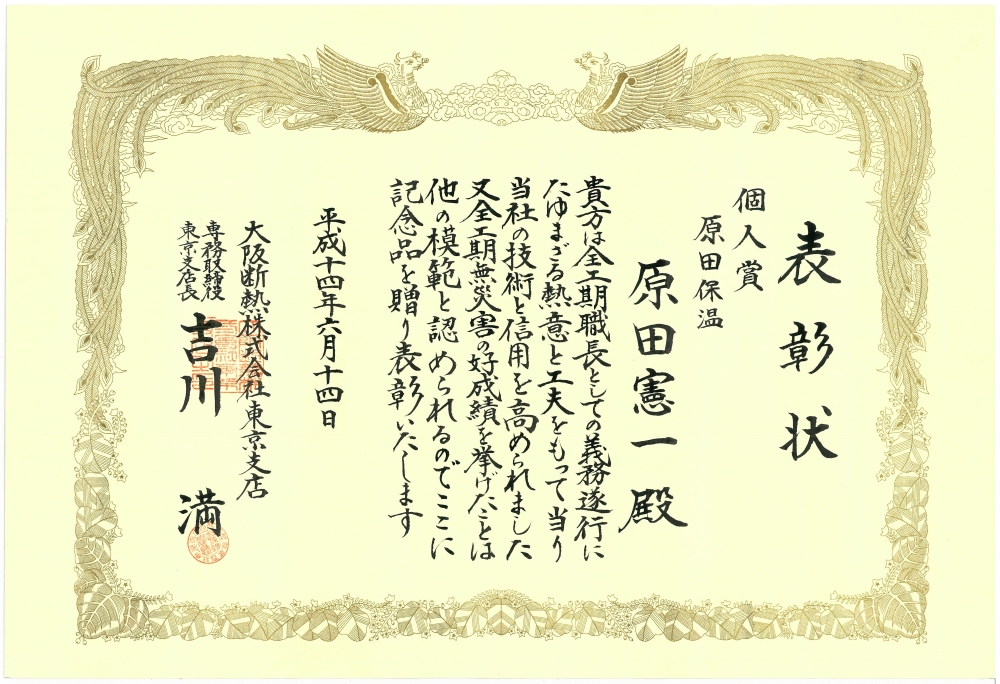 表彰状
個人賞
原田保温
原田憲一殿
貴方は全工期職長としての義務遂行に
たゆまざる熱意と工夫をもって当り
当社の技術と信用を高められました
又全工期無災害の好成績を挙げたことは
他の模範と認められるのでここに
記念品を贈り表彰いたします
平成十四年六月十四日
大阪断熱株式会社東京支店
専務取締役
東京支店長
吉川満